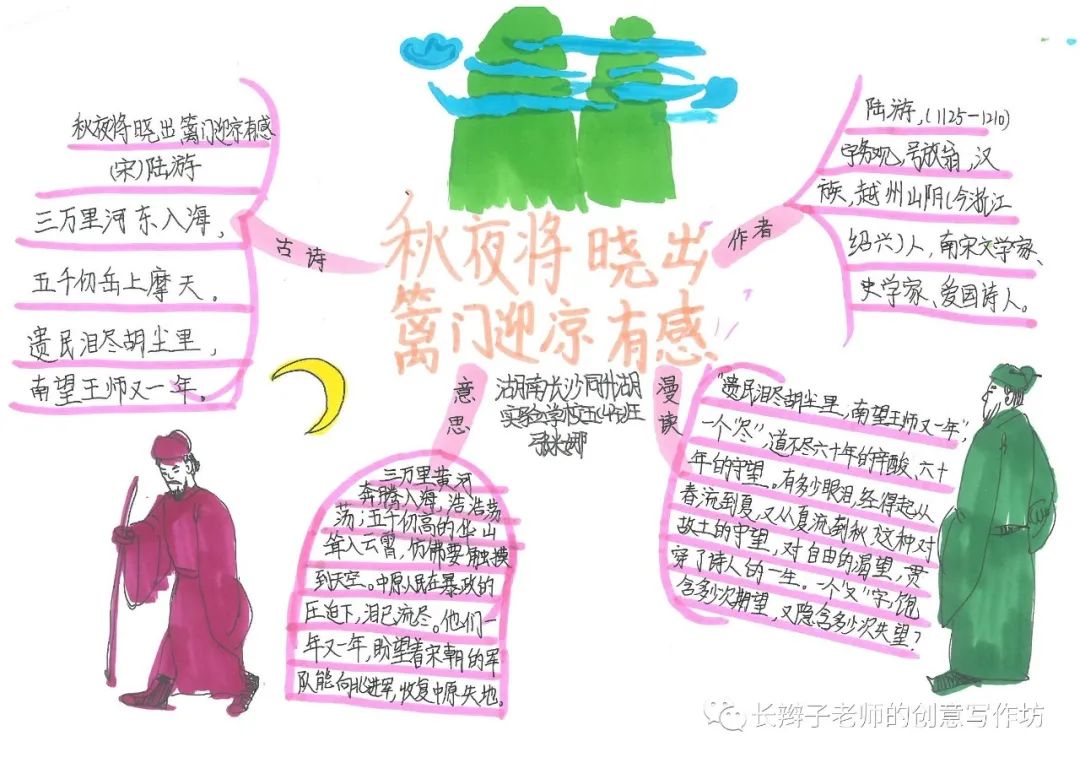 秋夜将晓出篱门迎凉有感
(宋)陆游
三万里河东入海，
五千仞岳上摩天。
遗民泪尽胡尘里，
南望王师又一年。
古诗
秋夜将晓出
篱门迎凉有感
作者
陆游，(1125—1210)
字务观，号放翁，汉
族，越州山阴(今浙江
绍兴)人，南宋文学家、
史学家、爱国诗人。
意思
湖南长沙同升湖
实验学校五(4)班
漫读
三万里黄河
奔腾入海，浩浩荡
荡；五千仞高的华山
耸入云霄，仿佛要触摸
到天空。中原人民在暴政的
压迫下，泪已流尽。他们一
年又一年，盼望着宋朝的军
队能向北进军，收复中原失地。
“遗民泪尽胡尘里，南望王师又一年”，
一个“尽”，道不尽六十年的辛酸、六十
年的守望。有多少眼泪，经得起从
春流到夏，又从夏流到秋，这种对
故土的守望，对自由的渴望，贯
穿了诗人的一生。一个“又”字，饱
含多少次期望，又隐含多少次失望？
长辫子老师的创意写作坊